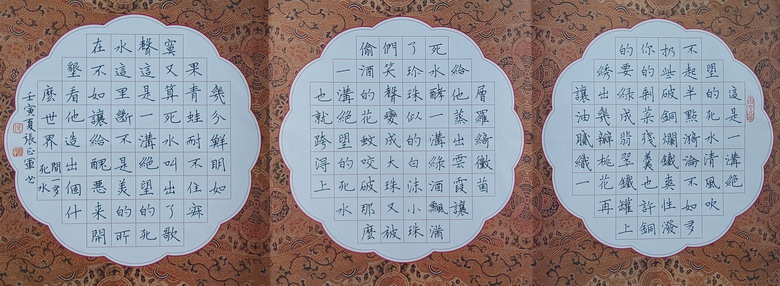 這是一溝絕
望的死水清風吹
不起半點漪淪不如多
扔些破銅爛鐵爽性潑
你的剩菜殘羹也許銅
的要綠成翡翠鐵罐上
綉出幾瓣桃花再
讓油膩織一
層羅綺黴菌
給他蒸出雲霞讓
死水酵一溝綠酒飄滿
了珍珠似的白沫小珠
們笑聲變成大珠又被
偷酒的花蚊咬破那麼
一溝絕望的死水
也就跨得上
幾分鮮明如
果青蛙耐不住寂
寞又算死水叫出了歌
聲這是一溝絕望的死
水這里斷不是美的所
在不如讓給醜惡来開
墾看他造出個什
麼世界 聞一多 死水
壬寅夏張正軍